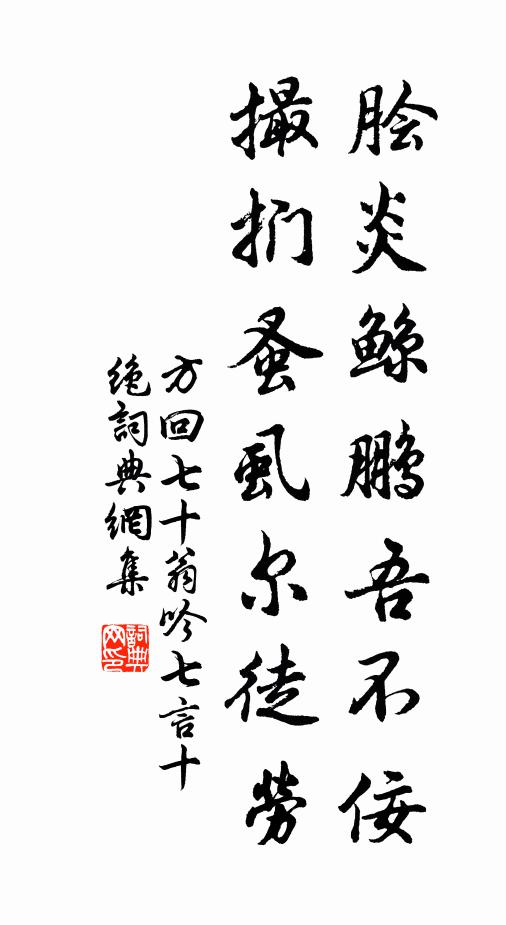 脍炎鲸鹏吾不佞
撮扪蚤虱尔徒劳
方回七十翁吟七言十
绝詞典網集
詞典网印